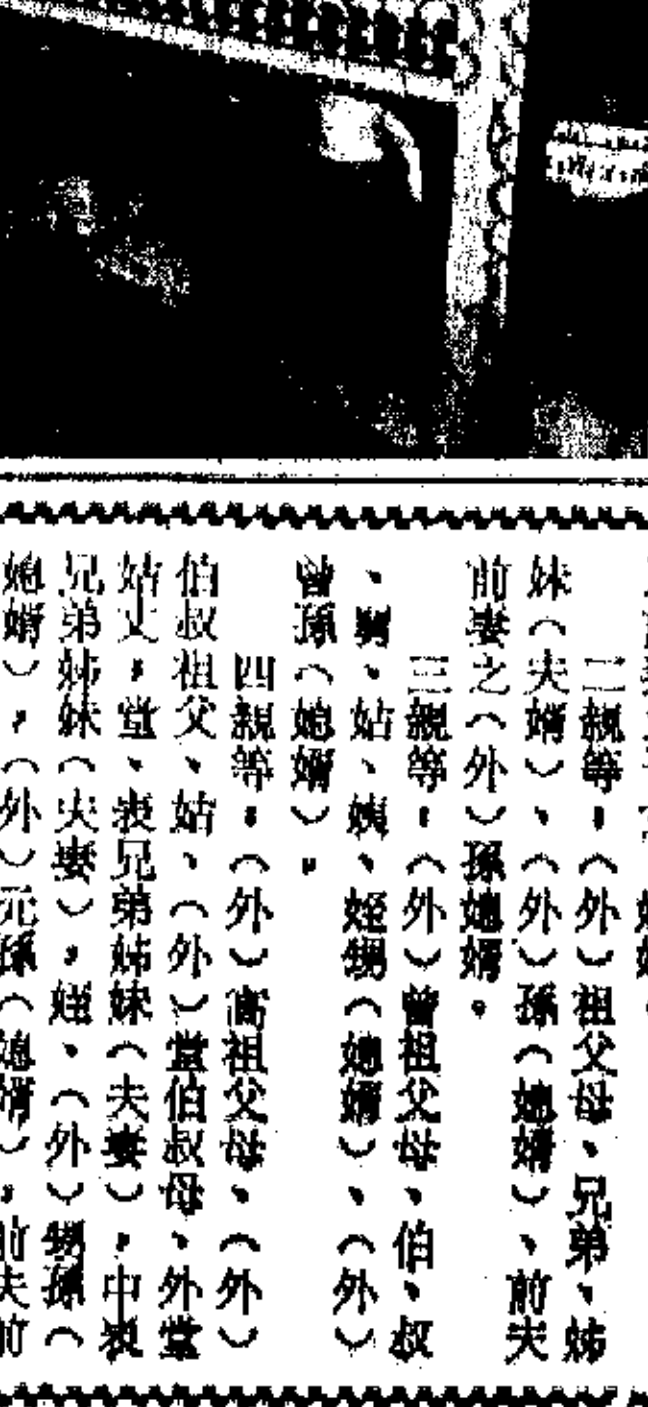 二親等，（外）祖父母、兄弟、姊
妹（夫婿）、（外）孫（媳婿）、前夫
前妻之（外）孫媳婿。
三親等，（外）曾祖父母、伯、叔
、舅、姑、姨、姪甥（媳婿）、（外）
曾孫（媳婿）。
四親等，（外）高祖父母、（外）
伯叔祖父、姑、（外）堂伯叔母、外堂
姑丈，堂、表兄弟姊妹（夫妻），中表
兄弟姊妹（夫妻），姪、（外）甥孫（
媳婿），（外）元孫（媳婿），前夫前